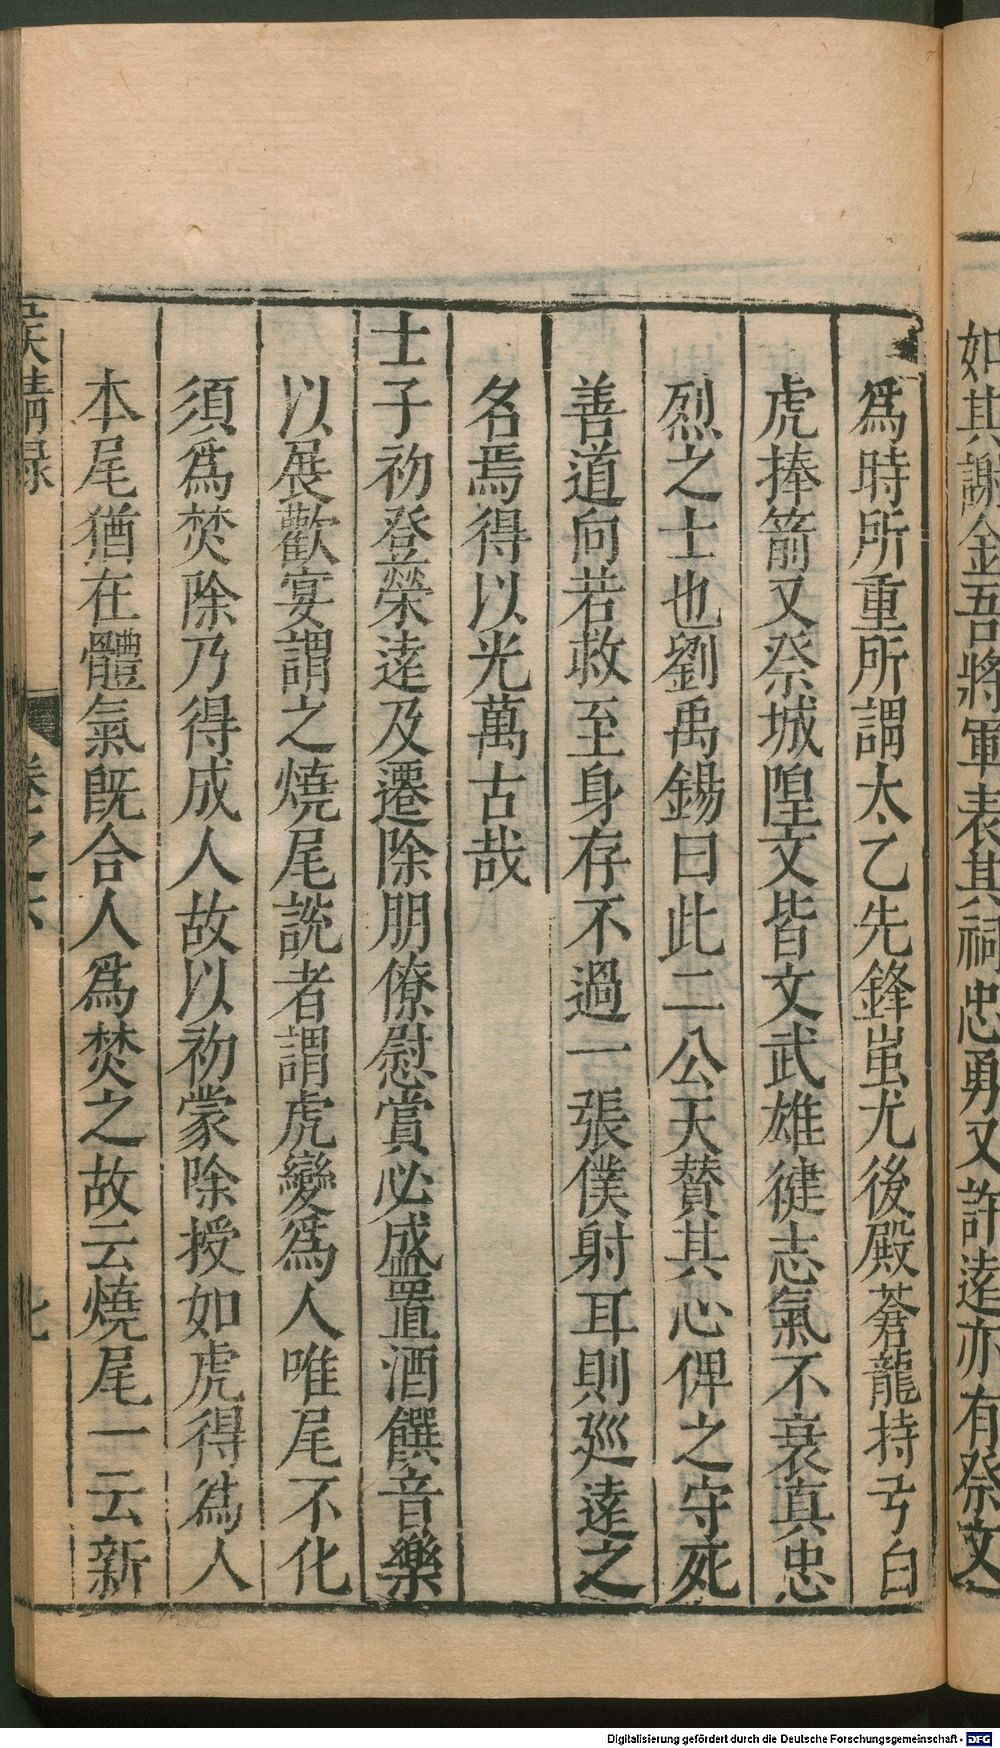 如其謝金吾將軍表其祠忠勇又許遠亦有祭文
爲時所重所謂太乙先鋒蚩尤後殿蒼龍持弓白
虎捧箭又祭城隍文皆文武雄健志氣不衰真忠
烈之士也劉禹錫曰此二公天贊其心俾之守死
善道向若救至身存不過一張僕射耳則巡逺之
名焉得以光萬古哉
士子初登榮逺及遷除朋僚慰賞必盛置酒饌音樂
以展歡宴謂之燒尾説者謂虎變爲人唯尾不化
須爲焚除乃得成人故以初蒙除授如虎得爲人
本尾猶在體氣旣合人爲焚之故云燒尾一云新
侯鯖録
卷之六
七
Digitalisierung gefördert durch die Deutsche Forschungsgemeinschaft - DFG